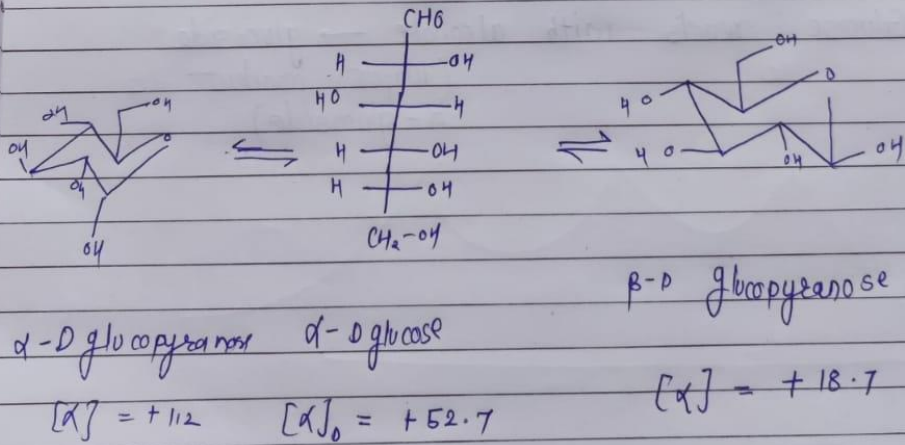 CHO
H OH
HO H
H OH
H OH
CH₂-OH
OH OH O
OH OH
OH
OH O
HO
HO OH OH
β-D glucopyranose
α-D glucopyranose α-D glucose
[α] = +112 [α]D = +52.7 [α] = +18.7